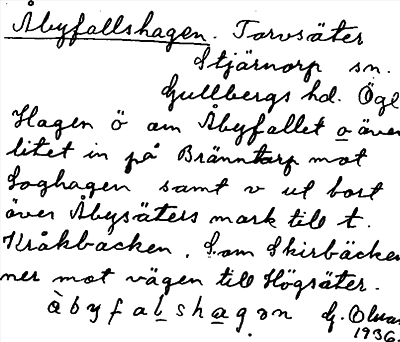 Åbyfallshagen. Torvsäter
Stjärnorp sn.
Gullbergs hd. Ögl
Hagen ö om Åbyfallet o även
litet in på Bränntorp mot
Loghagen samt v ut bort
över Åbysäters mark till t.
Kråkbacken. S om Skirbäcken
ner mot vägen till Högsäter.
àbyfalshagon G. Olsson
1936.